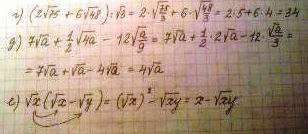 г) (2√75 + 6√48) : √3 = 2·√(75/3) + 6·√(48/3) = 2·5 + 6·4 = 34
д) 7√a + 1/2 √4a − 12√(a/9) = 7√a + 1/2·2√a − 12·√a/3 =
= 7√a + √a − 4√a = 4√a
е) √x(√x − √y) = (√x)² − √xy = x − √xy